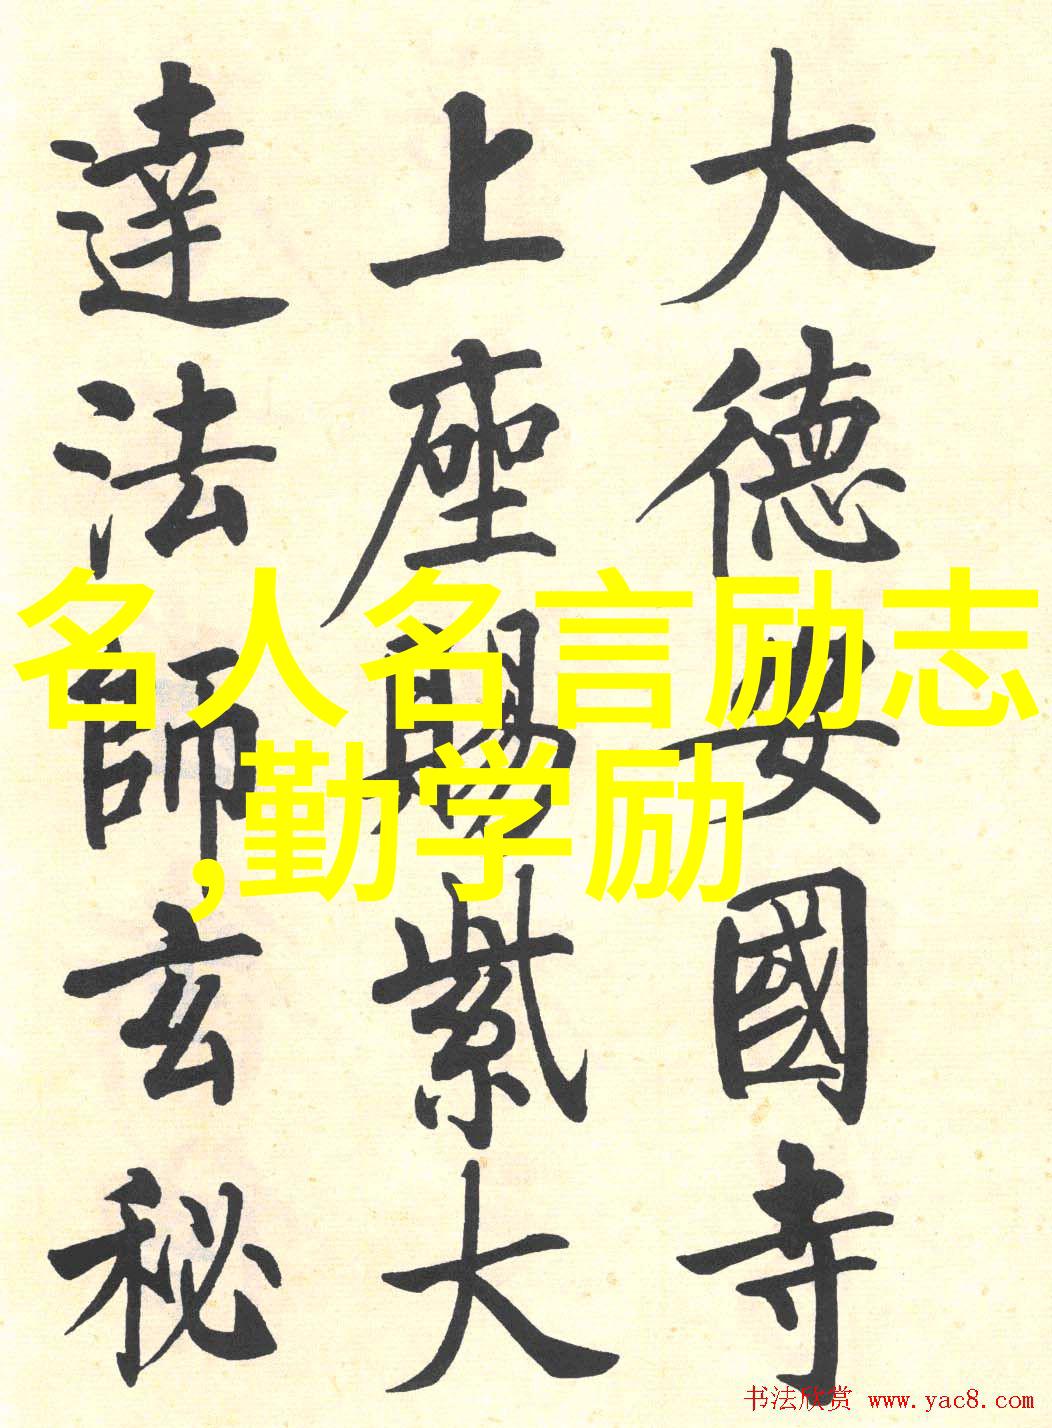 大德安國寺
上座賜紫大
達法師玄秘
名人名言励志
,勤学励
书法欣赏 www.yac8.com